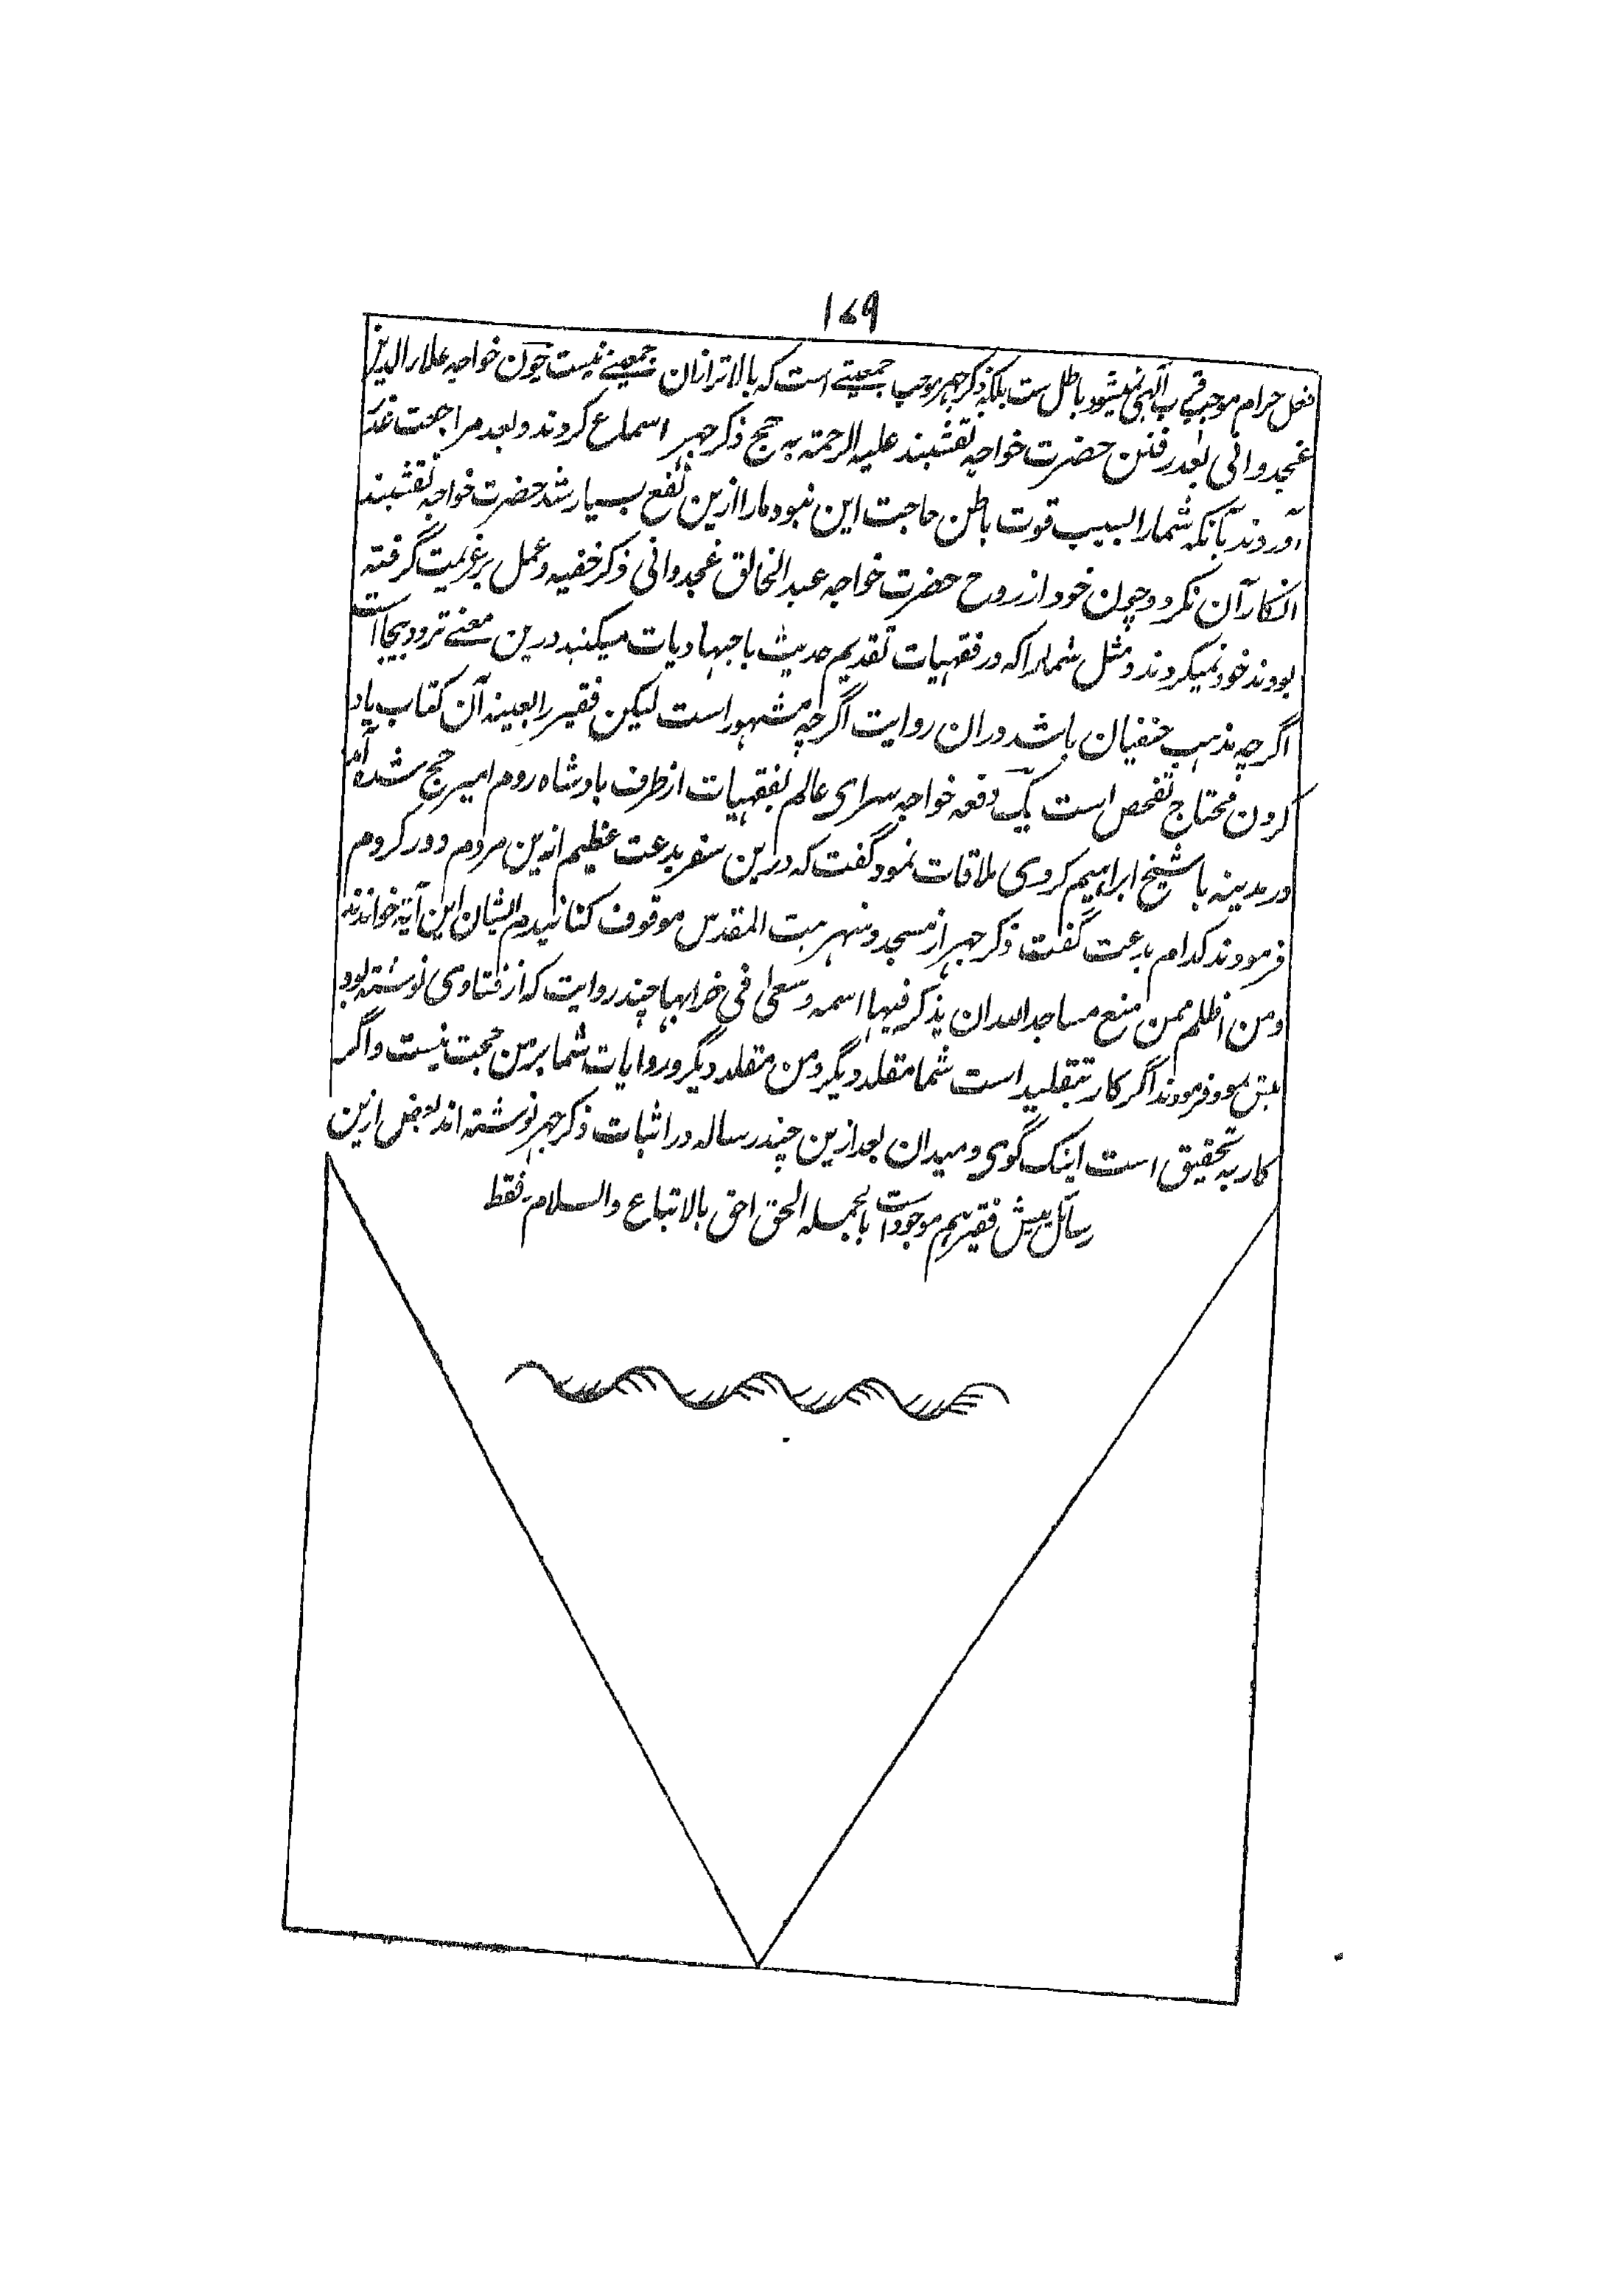 ۱۷۹
فعل حرام موجب قرب آلهی نمیشود باطل ست بلکه ذکر جهر موجب جمعیتے است که بالاتر ازان جمعیتے نیست چون خواجه علاءالدین
غجدوانی بعد رفتن حضرت خواجه نقشبند علیه الرحمة به حج ذکر جهر اسماع کردند و بعد مراجعت عذر
آوردند بآنکه شما را بسبب قوت باطن حاجت این نبود ما را ازین نفع بسیار شد حضرت خواجه نقشبند
انکار آن نکرد و چون خود از روح حضرت خواجه عبد الخالق غجدوانی ذکر خفیه و عمل بر عزیمت گرفته
بودند خود نمیکردند و مثل شما را که در فقهیات تقدیم حدیث باجتهادیات میکنند درین معنے تردد بیجا است
اگرچه مذهب حنفیان باشد و ران روایت اگرچه مشهور است لیکن فقیر را بعینه آن کتاب یاد
کردن محتاج تفحص است یک دفعه خواجه سرای عالم بفقهیات از طرف بادشاه روم امیر حج شده آمد
در مدینه با شیخ ابراهیم کردی ملاقات نمود گفت که درین سفر بدعت عظیم ازین مردم دور کردم
فرمودند کدام بدعت گفت ذکر جهر از مسجد و شهر بیت المقدس موقوف کنانیدم ایشان این آیة خواندند
و من اظلم ممن منع مساجد الله ان یذکر فیها اسمه و سعی فی خرابها چند روایت که از فتاوی نوشته بود
نمود فرمودند اگر کار بتقلید است شما مقلد دیگر و من مقلد دیگر و روایات شما بر من حجت نیست و اگر
کار به تحقیق است اینک گوی و میدان بعد ازین چند رساله در اثبات ذکر جهر نوشته اند بعض ازین
رسائل پیش فقیر هم موجود است بالجمله الحق احق بالاتباع والسلام فقط